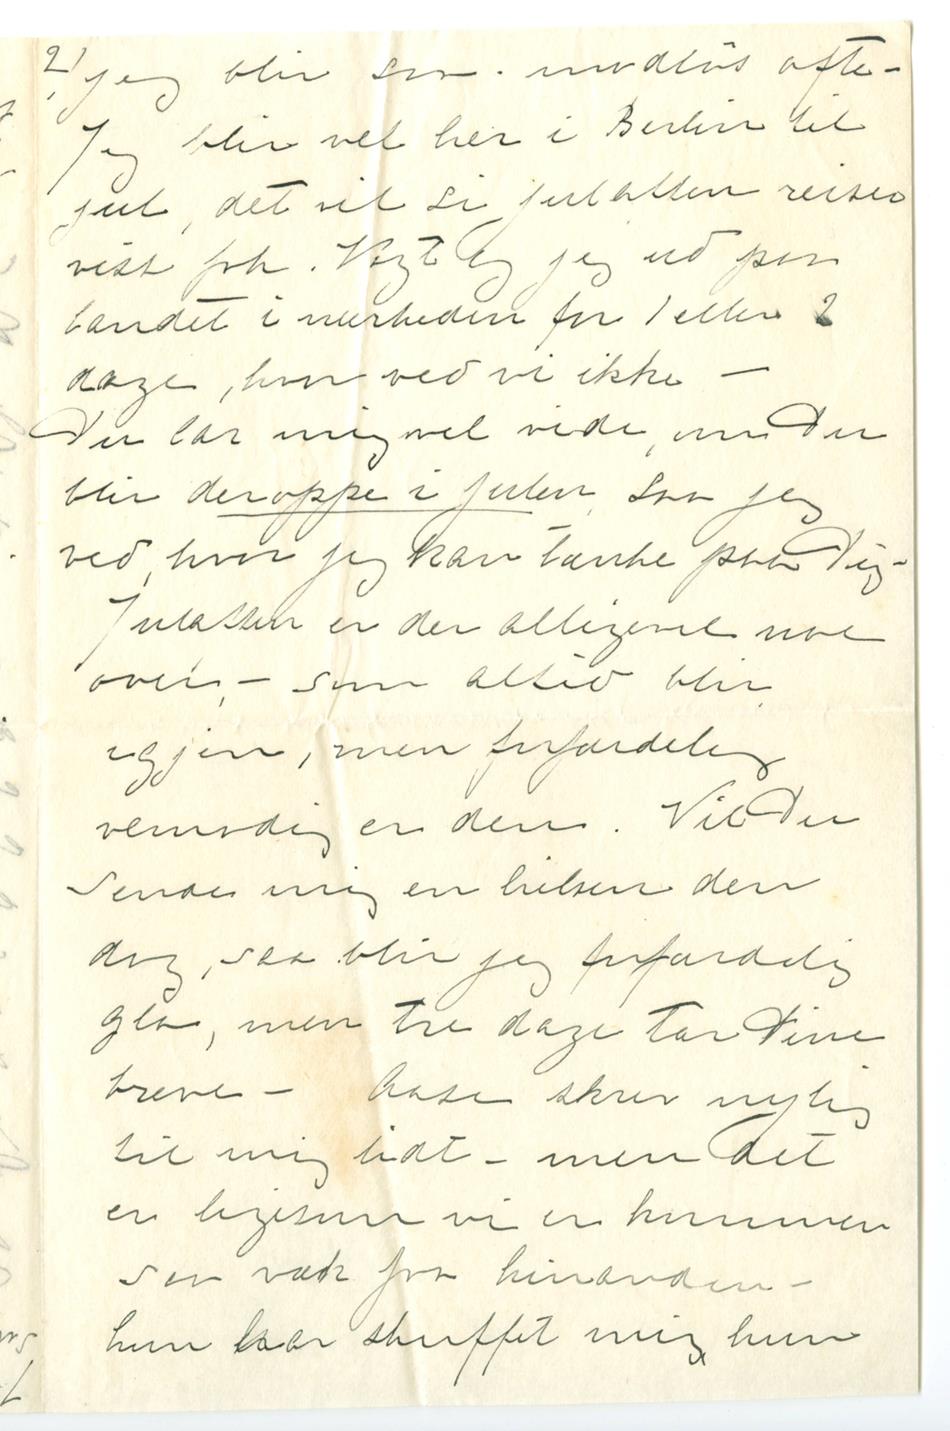 2) jeg blir saa modløs ofte –
Jeg blir vel her i Berlin til
jul, det vil si julaften reiser
vist frk. Vogt og jeg ud paa
landet i nærheden for 1 eller 2
dage, hvor ved vi ikke –
Du lar mig vel vide, om Du
blir deroppe i julen, saa jeg
ved, hvor jeg kan tænke paa Dig –
Julaften er der alligevel noe
over, – som altid blir
igjen, men forfærdelig
vemodig er den. Vil Du
sende mig en hilsen den
dag, saa blir jeg forfærdelig
gla, men tre dage tar Dine
breve – Aase skrev nylig
til mig lidt – men det
er ligesom vi er kommen
saa væk fra hinanden –
hun har skuffet mig, hun